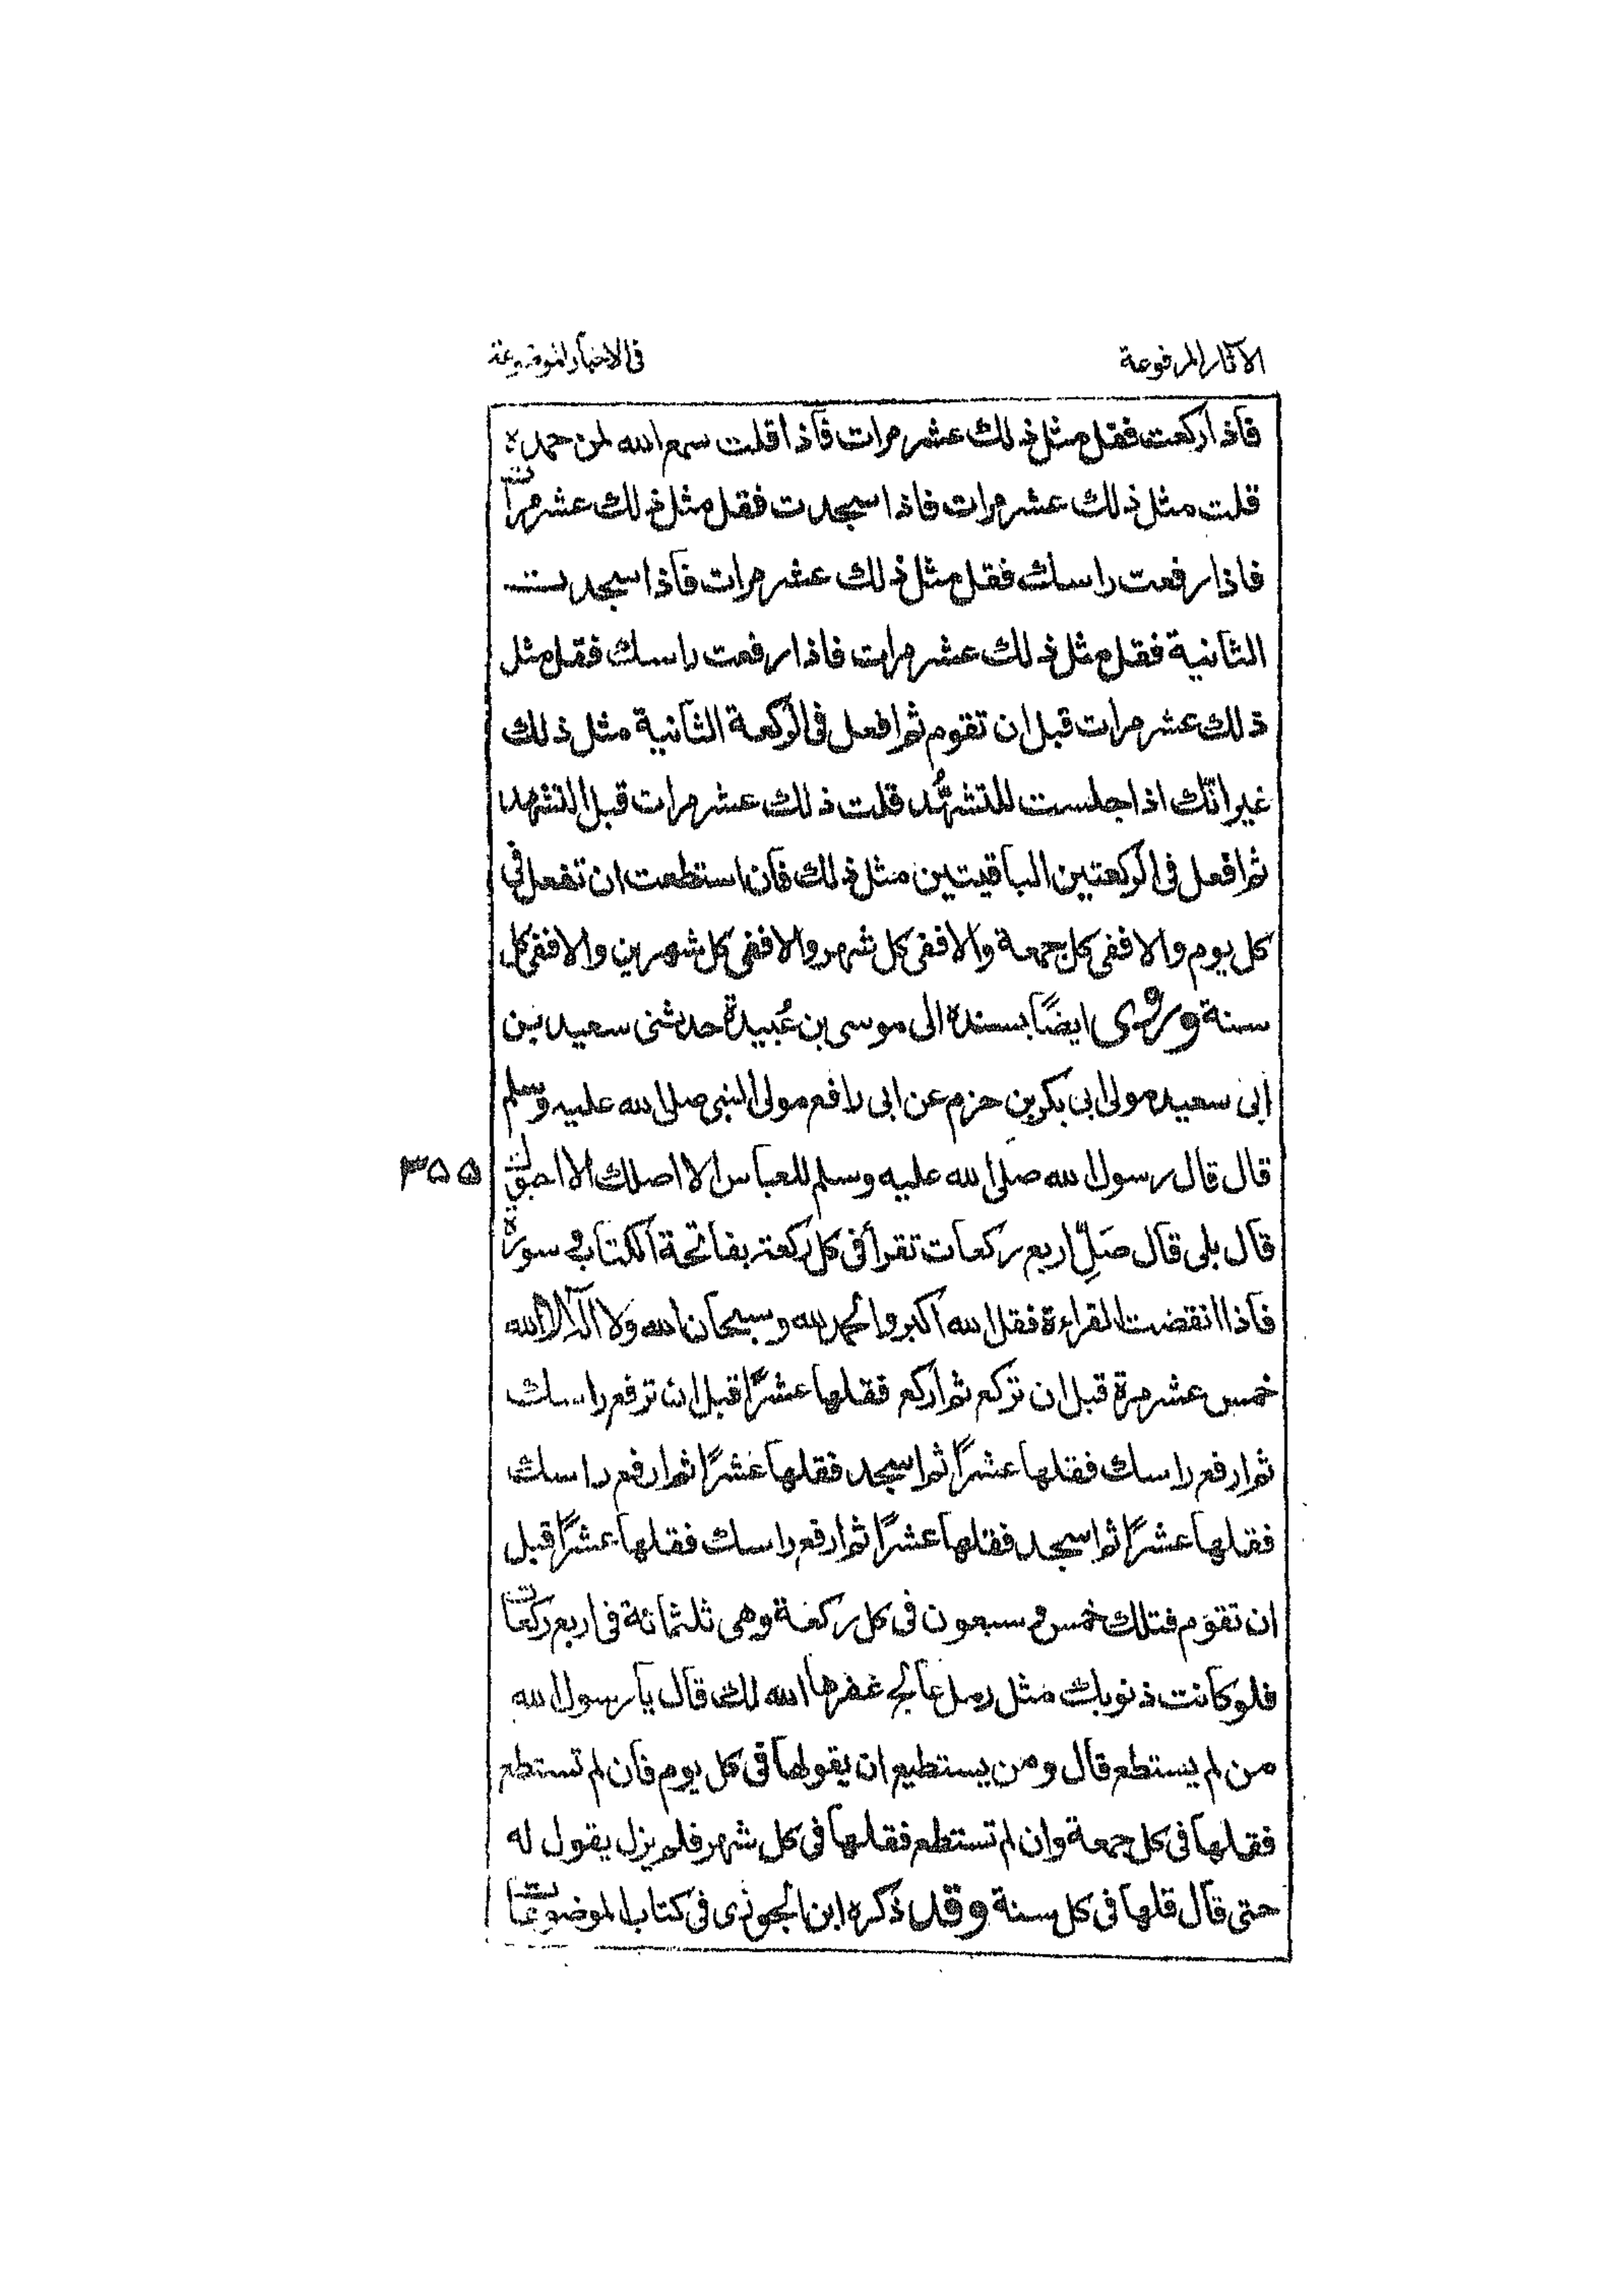 الآثار المرفوعة
فى الاخبار الموضوعة
فاذا ركعت فقل مثل ذلك عشر مرات فاذا قلت سمع الله لمن حمده
قلت مثل ذلك عشر مرات فاذا سجدت فقل مثل ذلك عشر مرات
فاذا رفعت راسك فقل مثل ذلك عشر مرات فاذا سجدت
الثانية فقل مثل ذلك عشر مرات فاذا رفعت راسك فقل مثل
ذلك عشر مرات قبل ان تقوم ثم افعل فى الركعة الثانية مثل ذلك
غير انّك اذا جلست للتشهُّد قلت ذلك عشر مرات قبل التشهد
ثم افعل فى الركعتين الباقيتين مثل ذلك فان استطعت ان تفعل فى
كل يوم والا ففى كل جمعة والا ففى كل شهر والا ففى كل شهرين والا ففى كل
سنة وروى ايضًا بسنده الى موسى بن عُبيدة حدثنى سعيد بن
ابى سعيد مولى ابى بكر بن حزم عن ابى رافع مولى النبى صلى الله عليه وسلم
قال قال رسول الله صلى الله عليه وسلم للعباس الا اصلك الا احبوك
٣٥٥
قال بلى قال صَلِّ اربع ركعات تقرأ فى كل ركعة بفاتحة الكتاب و سورة
فاذا انقضت القراءة فقل الله اكبر والحمد لله وسبحان الله ولا اله الا الله
خمس عشر مرة قبل ان تركع ثم اركع فقلها عشرًا قبل ان ترفع راسك
ثم ارفع راسك فقلها عشرًا ثم اسجد فقلها عشرًا ثم ارفع راسك
فقلها عشرًا ثم اسجد فقلها عشرًا ثم ارفع راسك فقلها عشرًا قبل
ان تقوم فتلك خمس و سبعون فى كل ركعة وهى ثلثمائة فى اربع ركعات
فلو كانت ذنوبك مثل رمل عالج غفرها الله لك قال يا رسول الله
من لم يستطع قال ومن يستطيع ان يقولها فى كل يوم فان لم تستطع
فقلها فى كل جمعة وان لم تستطع فقلها فى كل شهر فلم يزل يقول له
حتى قال قلها فى كل سنة وقد ذكره ابن الجوزى فى كتاب الموضوعات